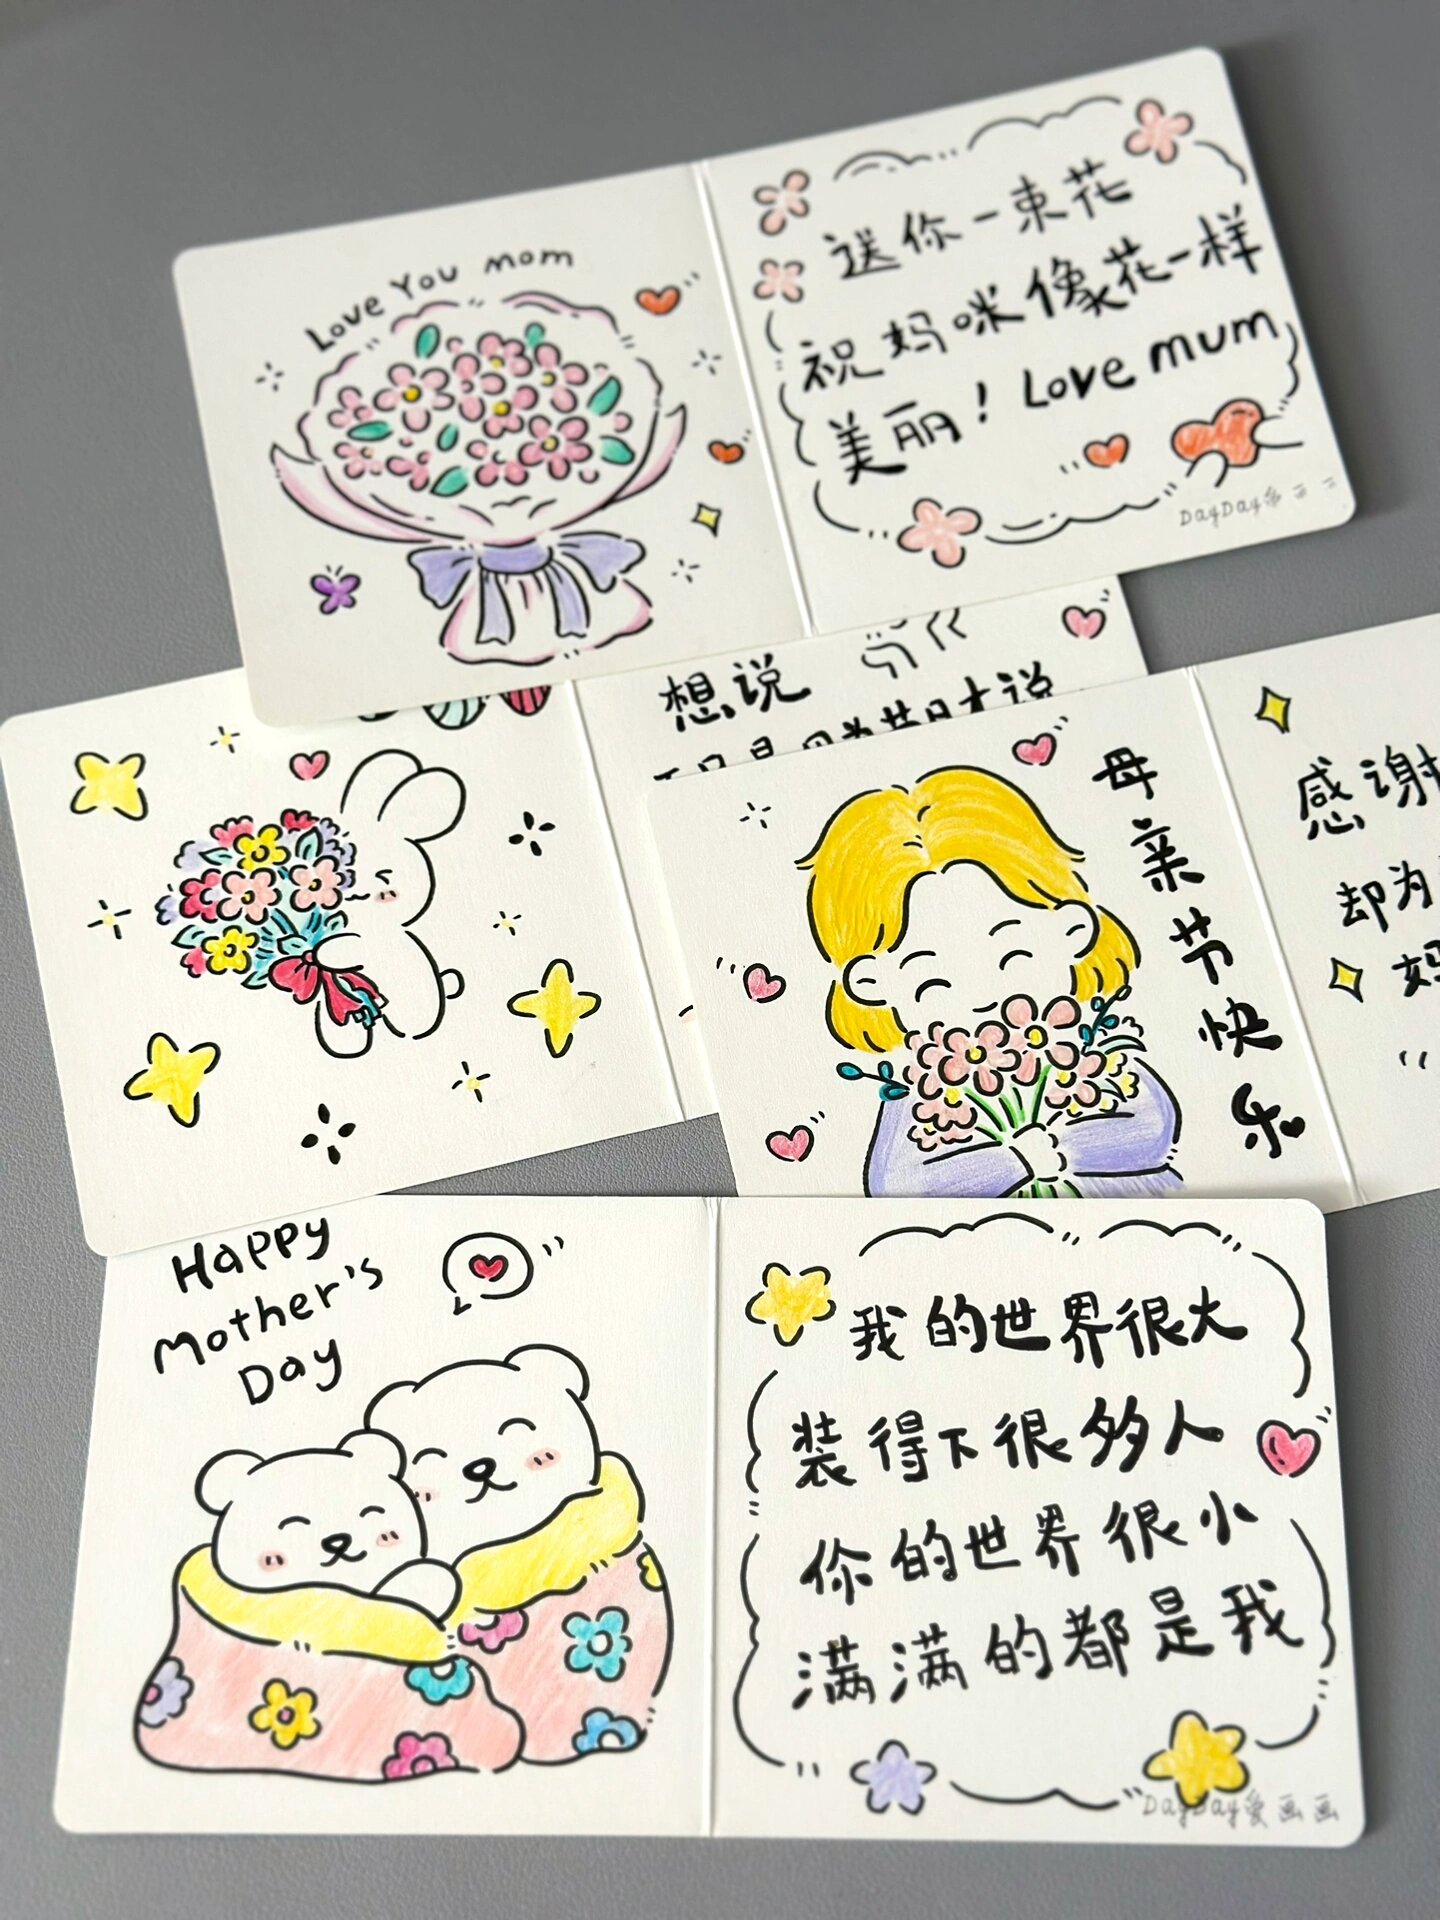 Love You mom
送你一束花
祝妈咪像花一样
美丽！Love mum
DayDay爱画画
想说
母亲节快乐
感谢
却为
妈
Happy
Mother's
Day
我的世界很大
装得下很多人
你的世界很小
满满的都是我
DayDay爱画画